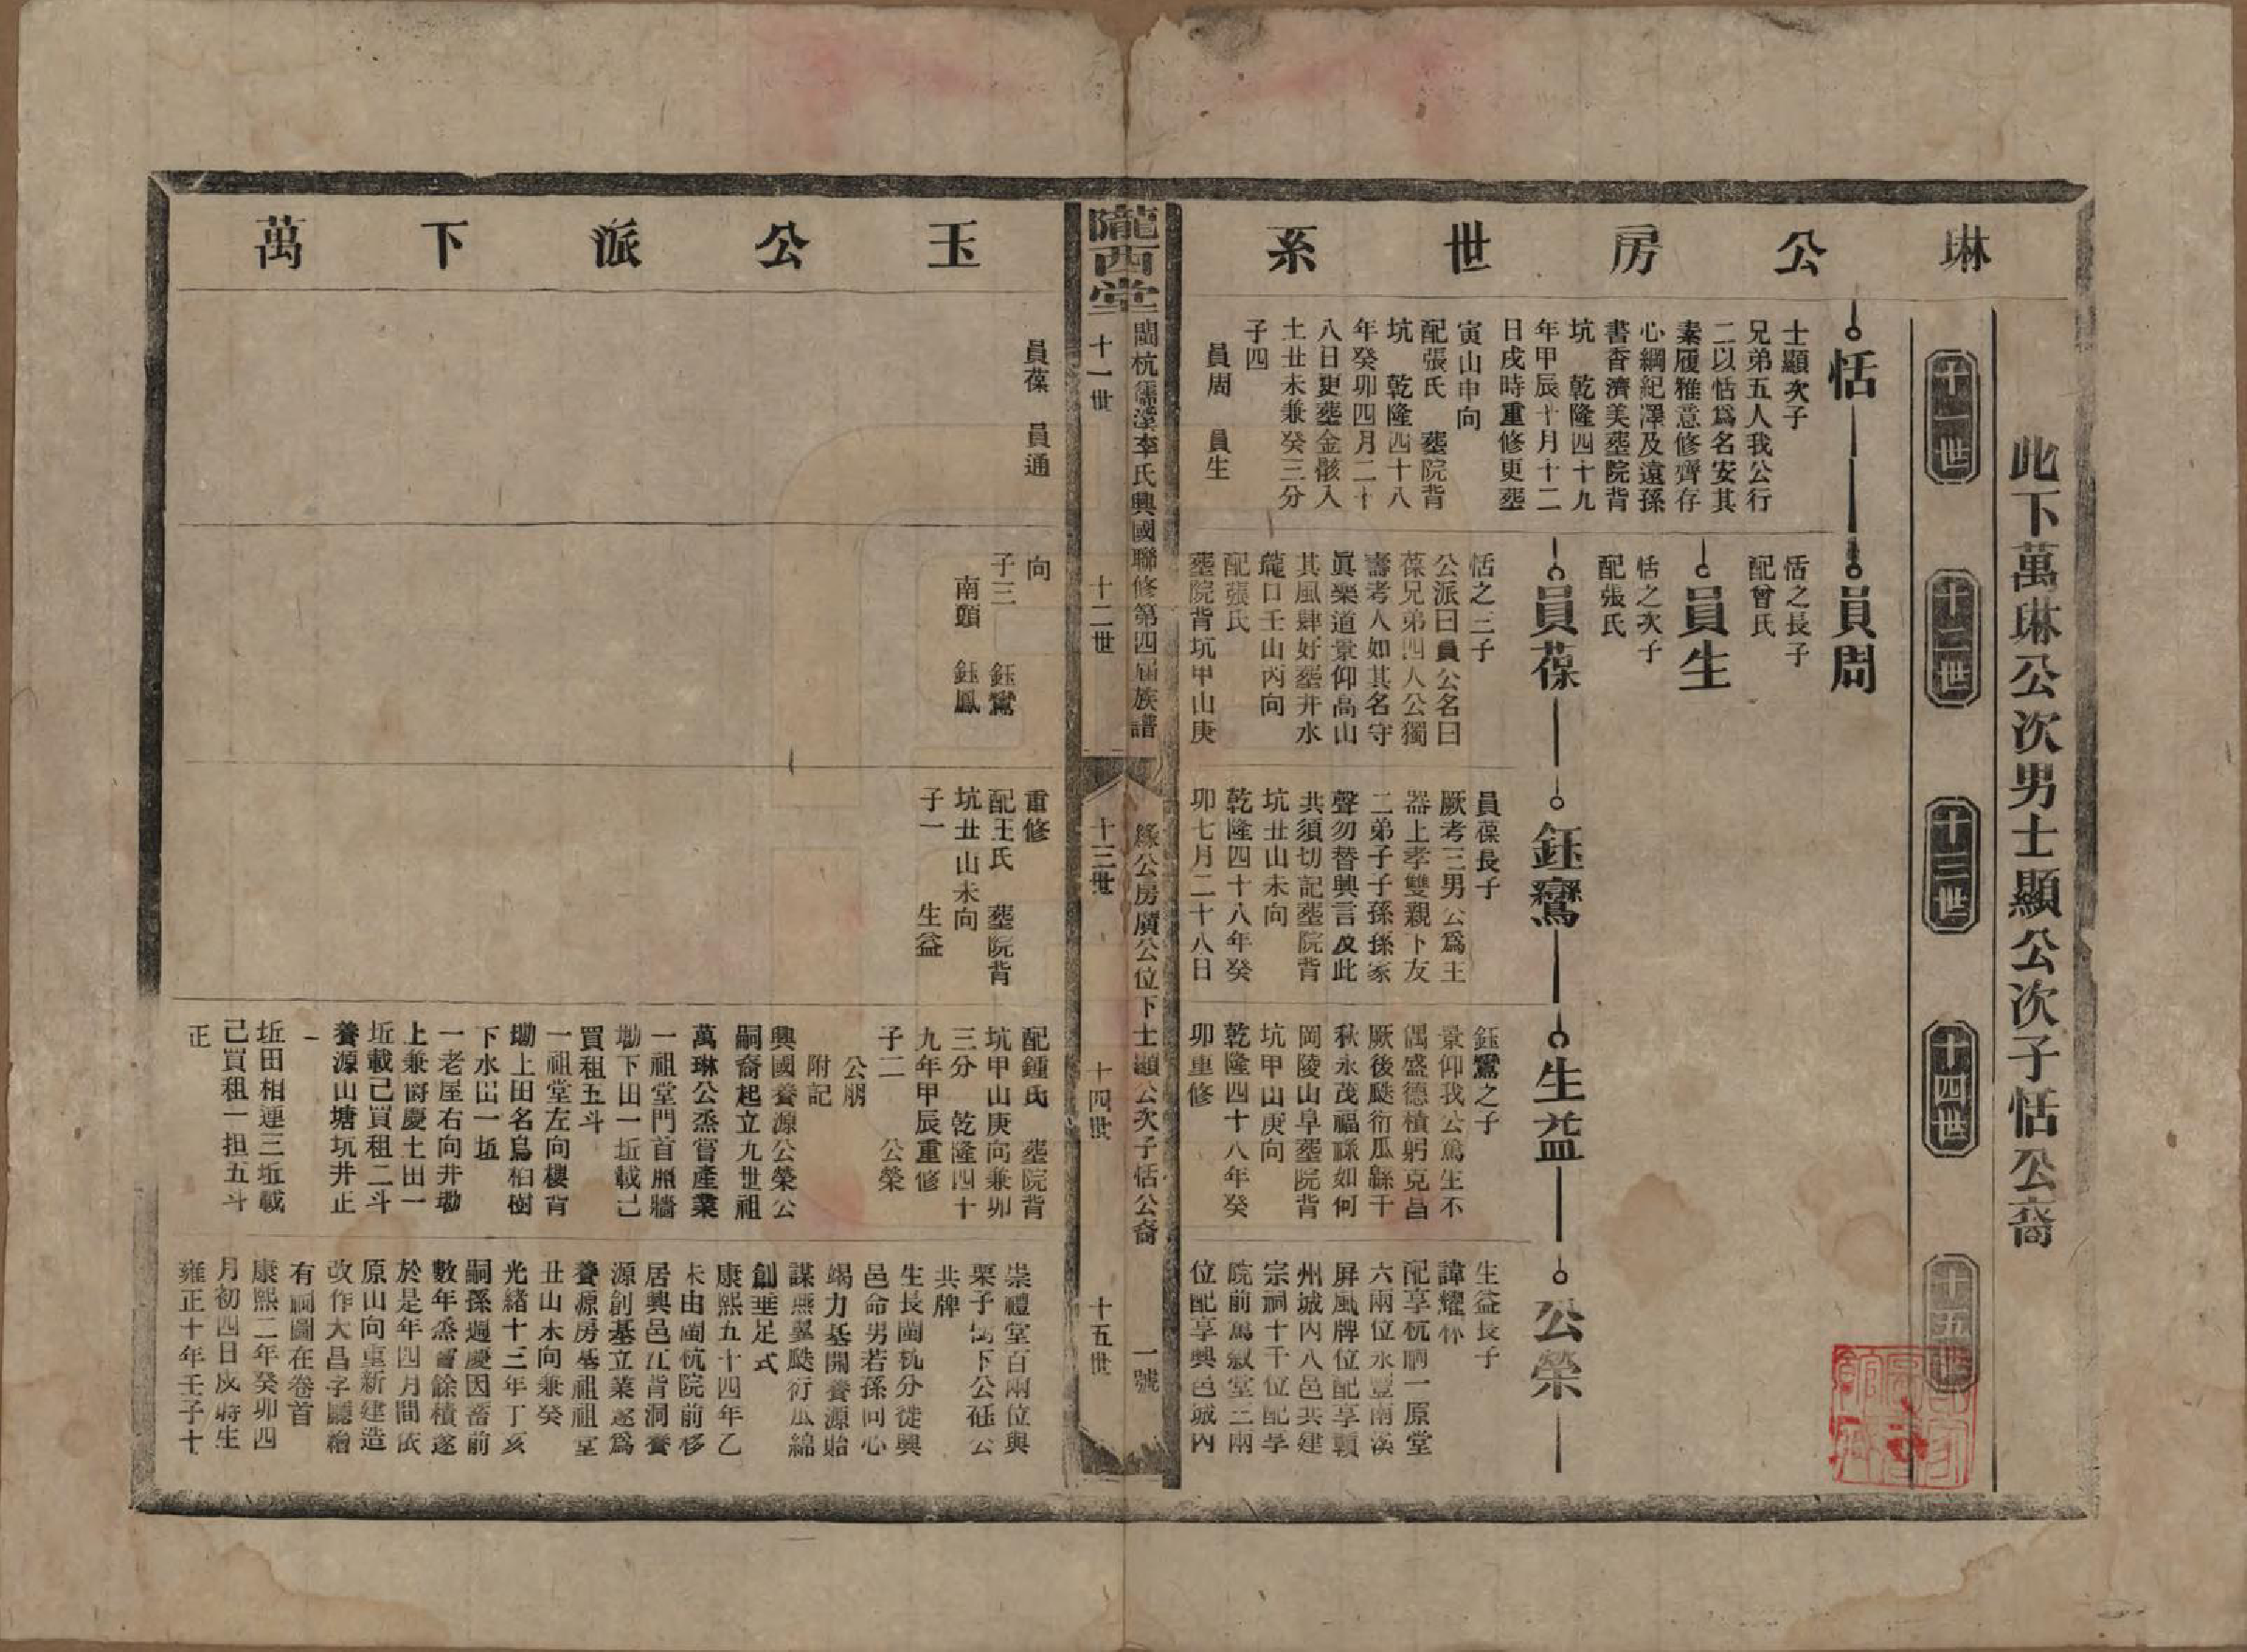 琳公房世系
此下萬琳公次男士顯公次子恬公裔
十一世
十二世
十三世
十四世
十五世
恬
士顯次子
兄弟五人我公行
二以恬爲名安其
素履雅意修齊存
心綱紀澤及遠孫
書香濟美塟院背
坑 乾隆四十九
年甲辰十月十二
日戌時重修更塟
寅山申向
配張氏 塟院背
坑 乾隆四十八
年癸卯四月二十
八日更塟金骸入
土丑未兼癸三分
子四
員周 員生
員周
恬之長子
配曾氏
員生
恬之次子
配張氏
員葆
恬之三子
公派曰員公名曰
葆兄弟四人公獨
壽考人如其名守
眞樂道景仰高山
其風肆好塟井水
龍口壬山丙向
配張氏
塟院背坑甲山庚
鈺鸞
員葆長子
厥考三男公爲主
器上孝雙親下友
二弟子子孫孫家
聲勿替興言及此
共須切記塟院背
坑丑山未向
乾隆四十八年癸
卯七月二十八日
生益
鈺鸞之子
景仰我公篤生不
偶盛德積躬克昌
厥後瓞衍瓜緜千
秋永茂福祿如何
岡陵山阜塟院背
坑甲山庚向
乾隆四十八年癸
卯重修
公榮
生益長子
諱耀林
配享杭祠一原堂
六兩位永豐南溪
屏風牌位配享贛
州城內八邑共建
宗祠十千位配享
院前萬敘堂三兩
位配享興邑城內
隴西堂
閩杭儒溪李氏興國聯修第四屆族譜
緣公房廣公位下士顯公次子恬公裔
一號
十一世
十二世
十三世
十四世
十五世
玉公派下萬
員葆 員通
向
子三 鈺鸞
南頭 鈺鳳
重修
配王氏 塟院背
坑丑山未向
子一 生益
配鍾氏 塟院背
坑甲山庚向兼卯
三分 乾隆四十
九年甲辰重修
子二 公榮
公朋
附記
興國養源公榮公
嗣裔起立九世祖
萬琳公烝嘗產業
一祖堂門首照牆
坳下田一坵載己
買租五斗
一祖堂左向樓背
坳上田名烏桕樹
下水田一坵
一老屋右向井坳
上兼尚慶土田一
坵載己買租二斗
養源山塘坑井正
一
坵田相連三坵載
己買租一担五斗
正
崇禮堂百兩位與
栗子 下公砡公
共牌
生長閩杭分徙興
邑命男若孫同心
竭力基開養源貽
謀燕翼瓞衍瓜綿
創垂足式
康熙五十四年乙
未由閩杭院前移
居興邑江背洞養
源創基立業遂爲
養源房基祖祖堂
丑山未向兼癸
光緒十三年丁亥
嗣孫週慶因蓄前
數年烝嘗餘積遂
於是年四月間依
原山向重新建造
改作大昌字廳繪
有祠圖在卷首
康熙二年癸卯四
月初四日戌時生
雍正十年壬子十